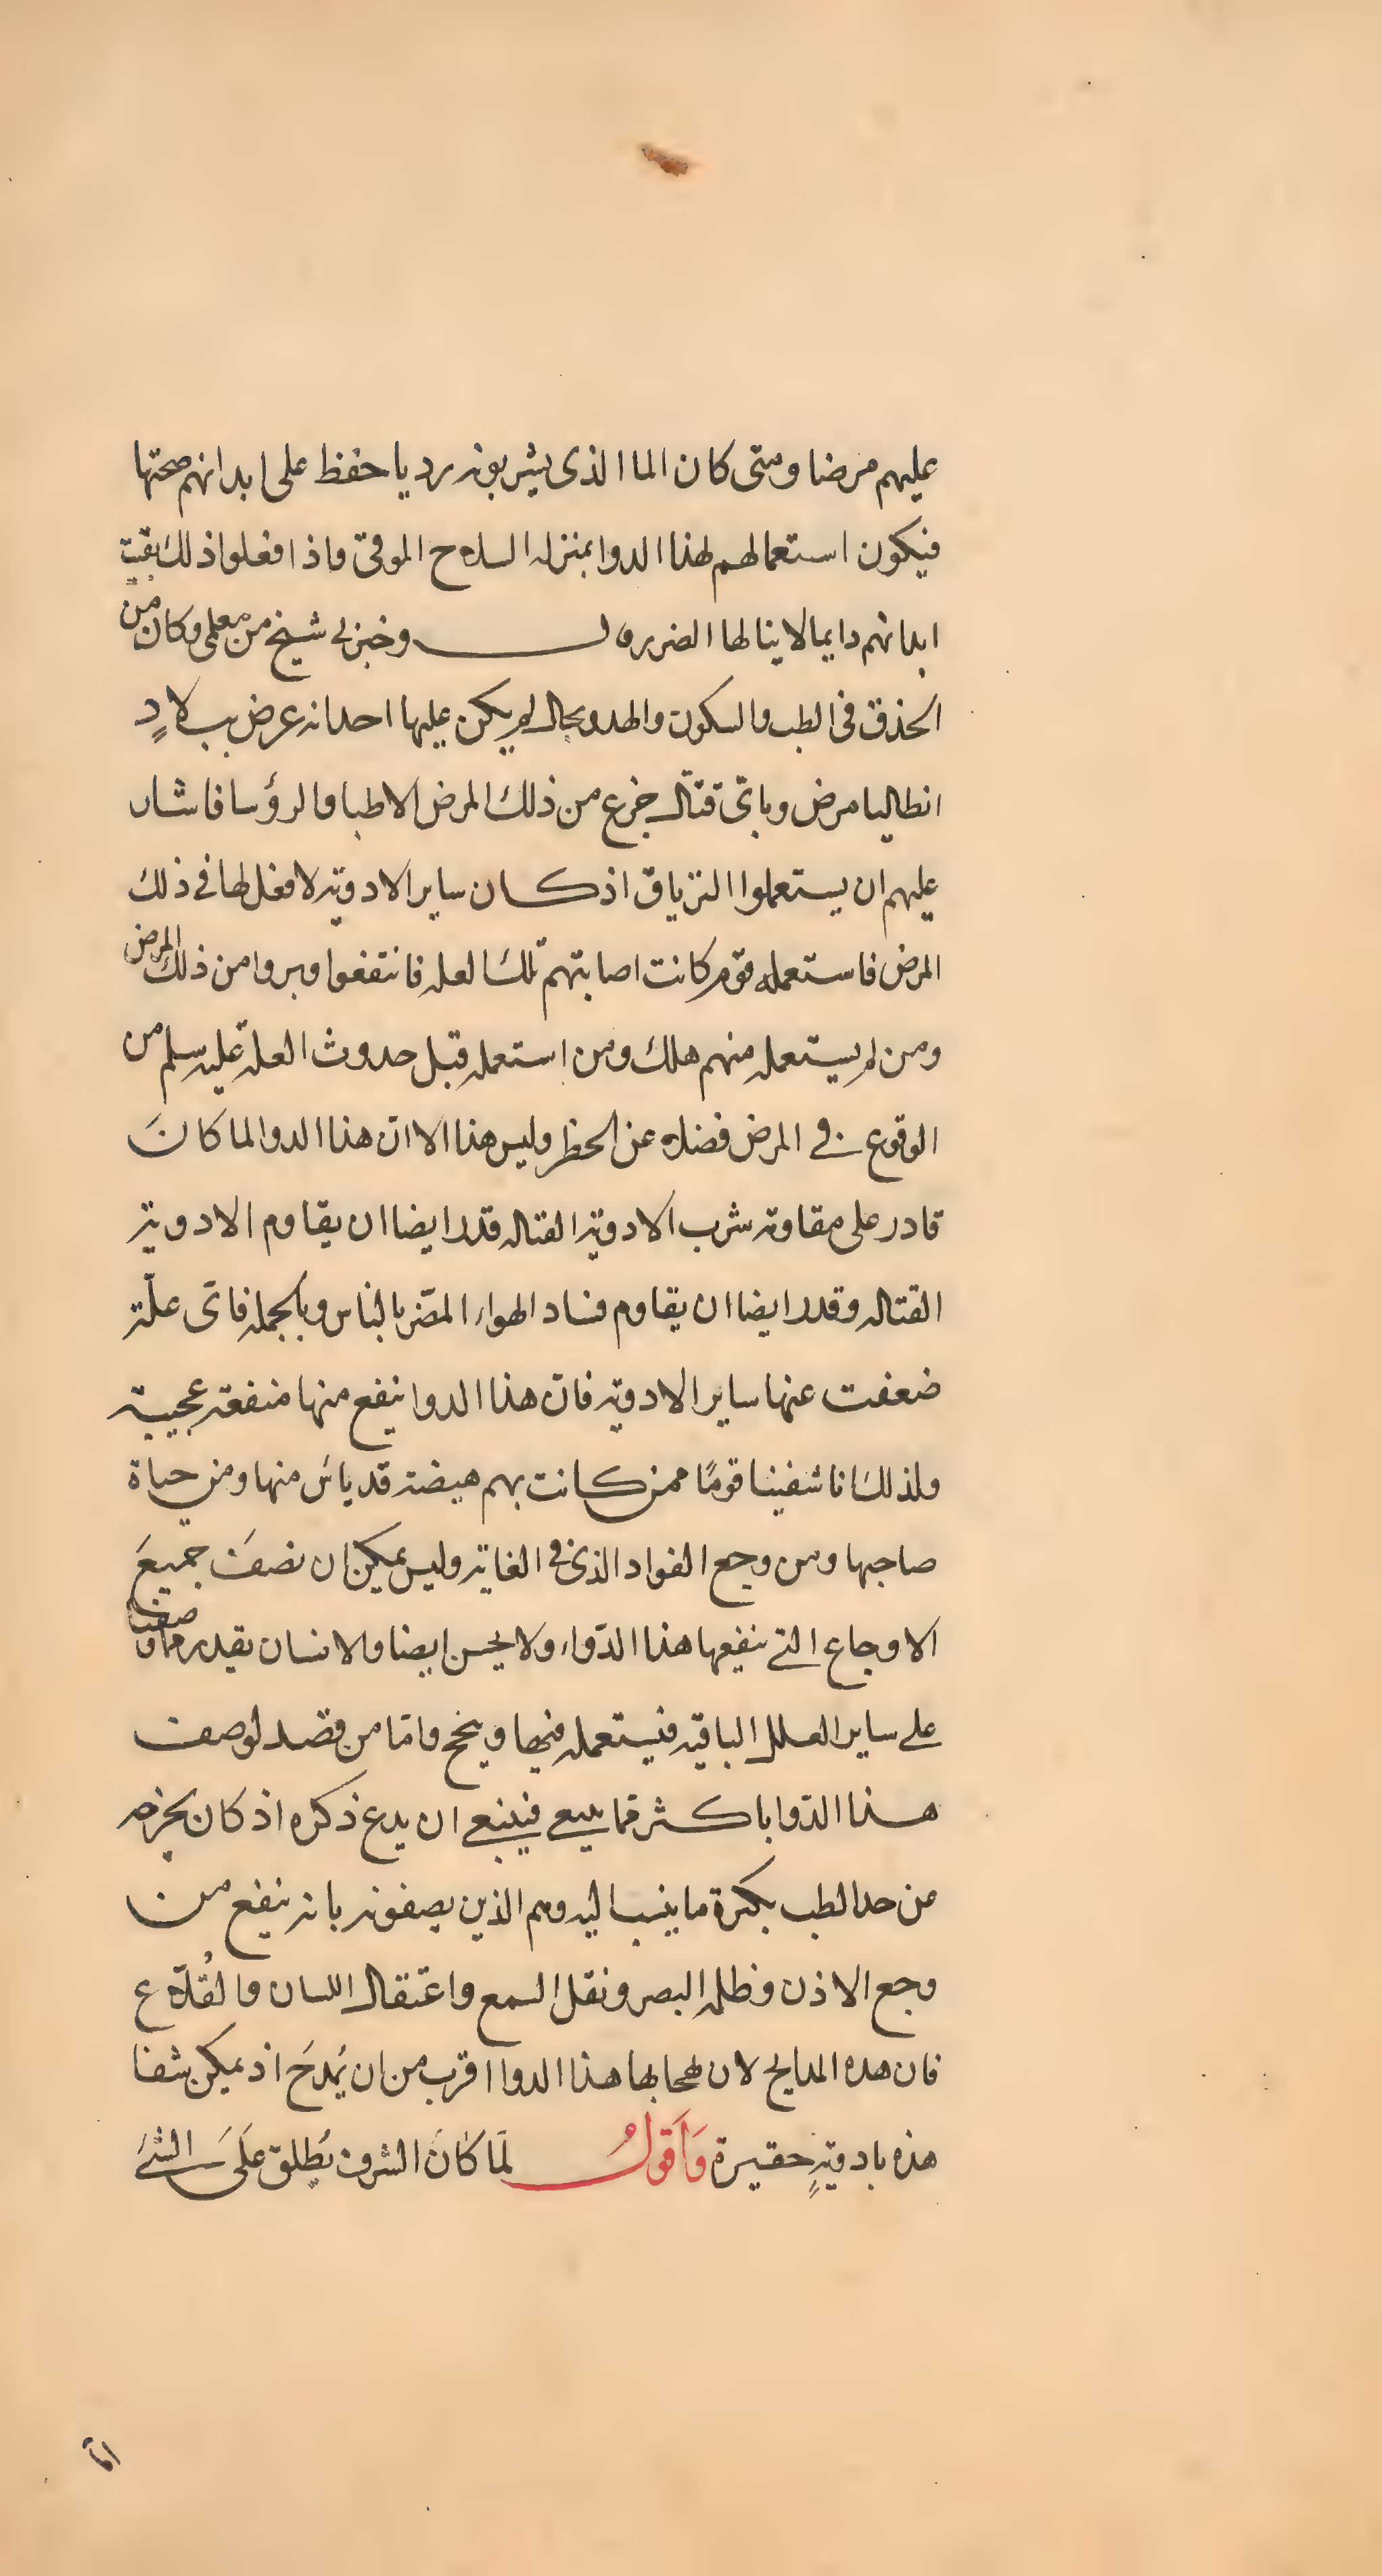 عليهم مرضا ومتى كان الما الذى يشربونه رديا حفظ على ابدانهم صحتها
فيكون استعمالهم لهذا الدوا بمنزله السلاح الموقى واذا فعلوا ذلك بقيت
ابدانهم دايما لا ينالها الضرر وخبرنى شيخ من معلمى وكان من
الحذق فى الطب والسكون والهدو بحال لم يكن عليها احد انه عرض ببلادِ
انطاليا مرض وبائى قتّال جزع من ذلك المرض الاطبا والرؤسا فاشار
عليهم ان يستعملوا الترياق اذ كان ساير الادويه لا فعل لها فى ذلك
المرض فاستعمله قوم كانت اصابتهم تلك العله فانتفعوا وبروا من ذلك المرض
ومن لم يستعمله منهم هلك ومن استعمله قبل حدوث العلة عليه سلم من
الوقوع فى المرض فضلا عن الخطر وليس هذا الا انّ هذا الدوا لما كانَ
قادر على مقاومه شرب الادويه القتاله قدر ايضا ان يقاوم الادويه
القتاله وقدر ايضا ان يقاوم فساد الهواء المضّر بالناس وبالجمله فاىّ علّة
ضعفت عنها ساير الادويه فانّ هذا الدوا ينفع منها منفعة عجيبة
ولذلك انا شفينا قومًا ممن كانت بهم هيضة قد ياس منها ومن حياة
صاحبها ومن وجع الفواد الذى فى الغاية وليس يمكن ان نصفَ جميعَ
الاوجاع التى ينفعها هذا الدّواء ولا يحسن ايضا والانسان يقدر مما وصفنا
على ساير العلل الباقيه فيستعمله فيها وينجح وامّا من قصد لوصف
هذا الدّوا باكثر مما ينبغى فينبغى ان يدع ذكره اذ كان يخرجه
من حد الطب بكثرة ما ينسب اليه وهم الذين يصفونه بانه ينفع من
وجع الاذن وظلمه البصر وثقل السمع واعتقال اللسان والقُلاع
فان هذه المدايح لان يهجا بها هذا الدوا اقرب من ان يُمدَح اذ يمكن شفا
هذه بادويةٍ حقيرة وَاَقولُ لَمّا كانَ الشرف يُطلق عَلَى الشئ
امّا